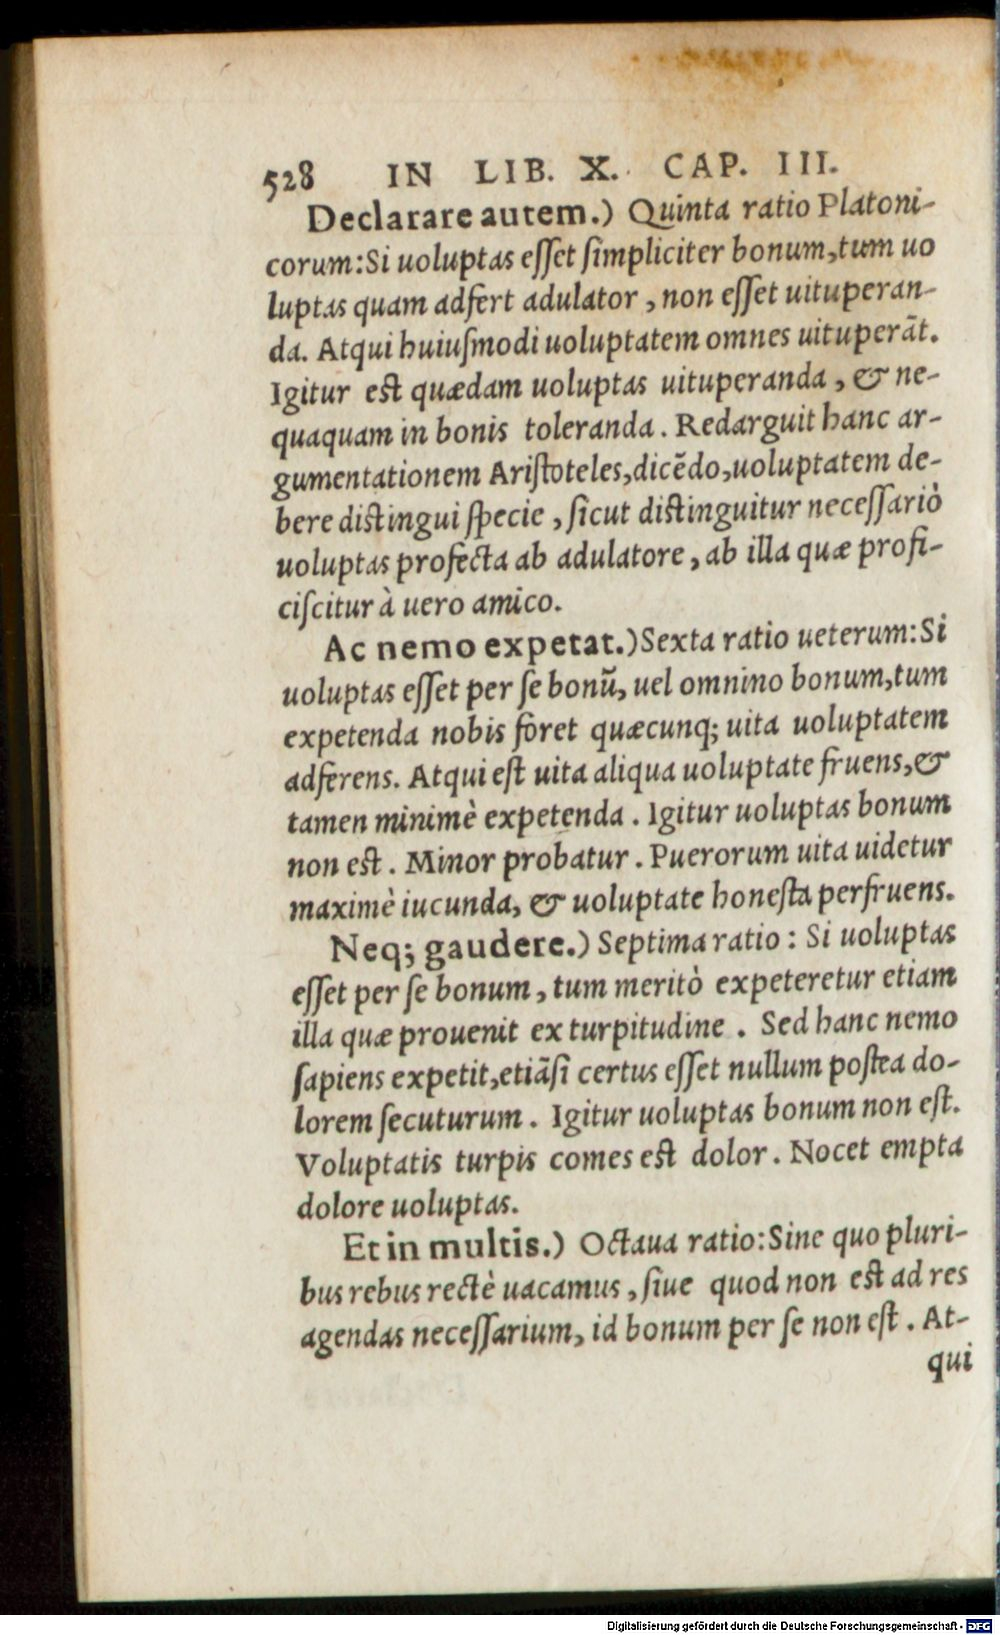 528 IN LIB. X. CAP. III.
Declarare autem.) Quinta ratio Platoni-
corum: Si uoluptas eſſet ſimpliciter bonum, tum uo
luptas quam adfert adulator, non eſſet uituperan-
da. Atqui huiuſmodi uoluptatem omnes uituperāt.
Igitur est quædam uoluptas uituperanda, & ne-
quaquam in bonis toleranda. Redarguit hanc ar-
gumentationem Ariſtoteles, dicēdo, uoluptatem de-
bere distingui ſpecie, ſicut distinguitur neceſſariò
uoluptas profecta ab adulatore, ab illa quæ profi-
ciſcitur à uero amico.
Ac nemo expetat.) Sexta ratio ueterum: Si
uoluptas eſſet per ſe bonū, uel omnino bonum, tum
expetenda nobis foret quæcunq; uita uoluptatem
adferens. Atqui eſt uita aliqua uoluptate fruens, &
tamen minimè expetenda. Igitur uoluptas bonum
non est. Minor probatur. Puerorum uita uidetur
maximè iucunda, & uoluptate honeſta perfruens.
Neq; gaudere.) Septima ratio: Si uoluptas
eſſet per ſe bonum, tum meritò expeteretur etiam
illa quæ prouenit ex turpitudine. Sed hanc nemo
ſapiens expetit, etiāſi certus eſſet nullum poſtea do-
lorem ſecuturum. Igitur uoluptas bonum non eſt.
Voluptatis turpis comes est dolor. Nocet empta
dolore uoluptas.
Et in multis.) Octaua ratio: Sine quo pluri-
bus rebus rectè uacamus, ſiue quod non est ad res
agendas neceſſarium, id bonum per ſe non eſt. At-
qui
Digitalisierung gefördert durch die Deutsche Forschungsgemeinschaft - DFG